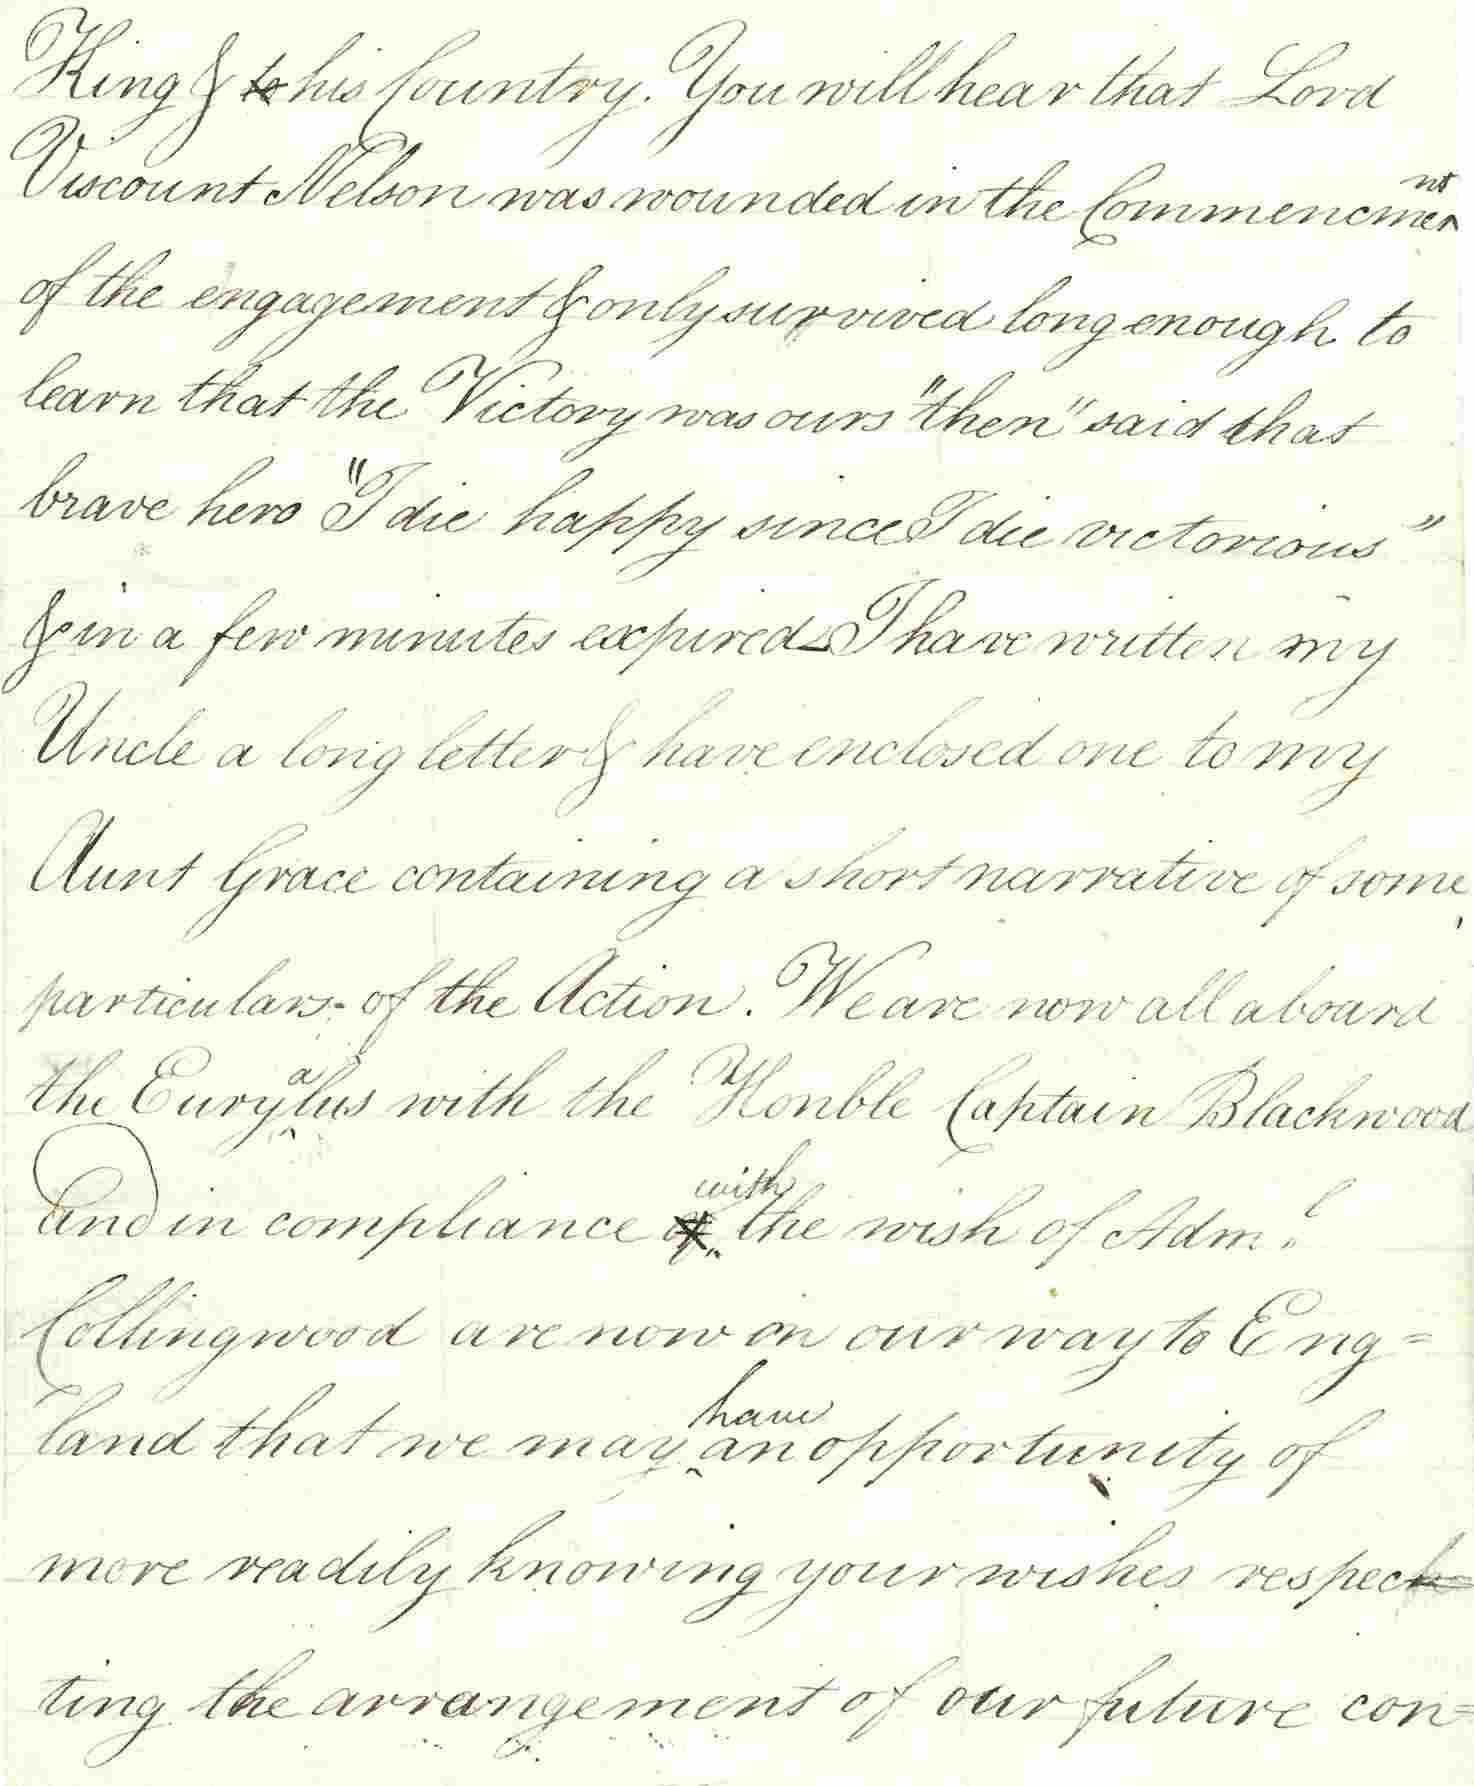 King & to his Country. You will hear that Lord
Viscount Nelson was wounded in the Commencment
of the engagement & only survived long enough to
learn that the Victory was ours "then" said that
brave hero "I die happy since I die victorious"
& in a few minutes expired I have written my
Uncle a long letter & have enclosed one to my
Aunt Grace containing a short narrative of some
particulars of the Action. We are now all aboard
the Euryalus with the Honble Captain Blackwood
and in compliance with the wish of Adm.l
Collingwood are now on our way to Eng=
land that we may have an opportunity of
more readily knowing your wishes respec
ting the arrangement of our future con=